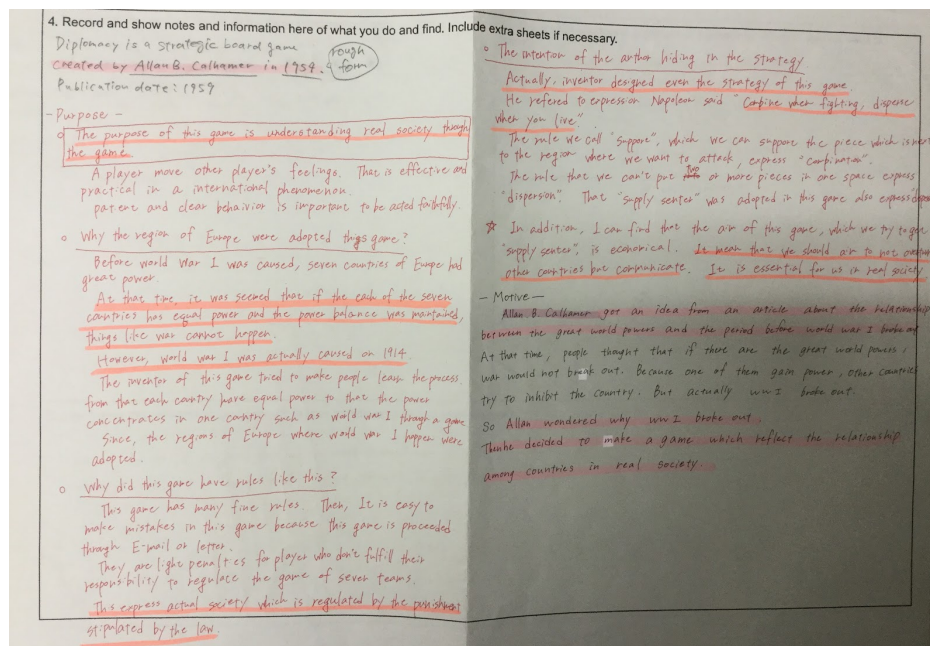 4. Record and show notes and information here of what you do and find. Include extra sheets if necessary.
Diplomacy is a strategic board game
created by Allan B. Calhamer in 1959.
rough
form
Publication date : 1959
- Purpose -
The purpose of this game is understanding real society through
the game
A player move other player's feelings. That is effective and
practical in a international phenomenon.
patent and clear behaivior is important to be acted faithfully.
Why the region of Europe were adopted this game?
Before world War I was caused, seven countries of Europe had
great power.
At that time, it was seemed that if the each of the seven
countries has equal power and the power balance was maintained,
things like war cannot happen.
However, world war I was actually caused on 1914.
The inventor of this game tried to make people learn the process
from that each country have equal power to that the power
concentrates in one contry such as world war I through a game
Since, the regions of Europe where world war I happen were
adopted.
Why did this game have rules like this?
This game has many fine rules. Then, It is easy to
make mistakes in this game because this game is proceeded
through E-mail or letter.
They are light penalties for player who don't fulfill their
responsibility to regulate the game of seven teams.
This express actual society which is regulated by the punishment
stipulated by the law.
The intention of the author hiding in the strategy
Actually, inventor designed even the strategy of this game.
He refered to expression Napoleon said "Conbine when fighting, disperse
when you live".
The rule we call "support", which we can support the piece which is next
to the region where we want to attack, express "combination".
The rule that we can't put two or more pieces in one space express
"dispersion". That "supply senter" was adopted in this game also express
☆ In addition, I can find that the aim of this game, which we try to get
"supply senter", is economical. It mean that we should aim to not
other countries but communicate. It is essential for us in real society
- Motive -
Allan. B. Calhamer got an idea from an article about the relationship
between the great world powers and the period before world war I broke out
At that time, people thought that if there are the great world powers,
war would not break out. Because one of them gain power, other countries
try to inhibit the country. But actually ww I broke out.
So Allan wondered why ww I broke out.
Then he decided to make a game which reflect the relationship
among countries in real society.